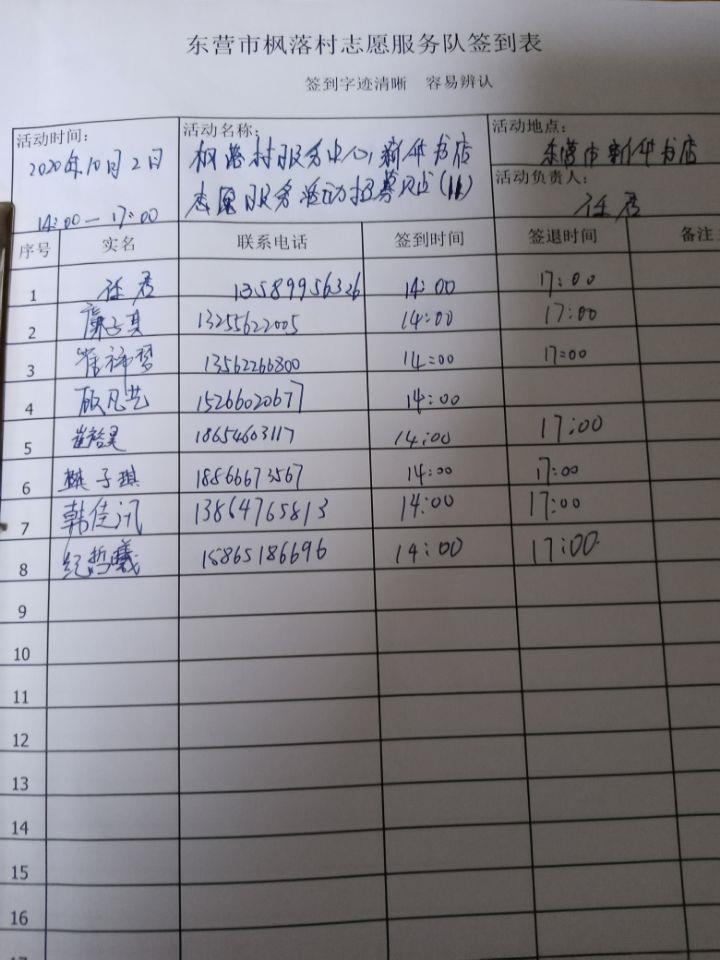 东营市枫落村志愿服务队签到表
签到字迹清晰 容易辨认
活动时间: 活动名称: 活动地点:
2020年10月2日 枫落村服务中心,新华书店 东营市新华书店
志愿服务活动招募贝戈(11) 活动负责人:
14:00—17:00 任君
序号 实名 联系电话 签到时间 签退时间 备注
1 任君 13589956326 14:00 17:00
2 廉子真 13255622005 14:00 17:00
3 13562266800 14:00 17:00
4 顾凡艺 15266020677 14:00
5 18654603117 14:00 17:00
6 子琪 18866673567 14:00 17:00
7 韩佳讯 13864765813 14:00 17:00
8 纪哲曦 15865186696 14:00 17:00
9
10
11
12
13
14
15
16